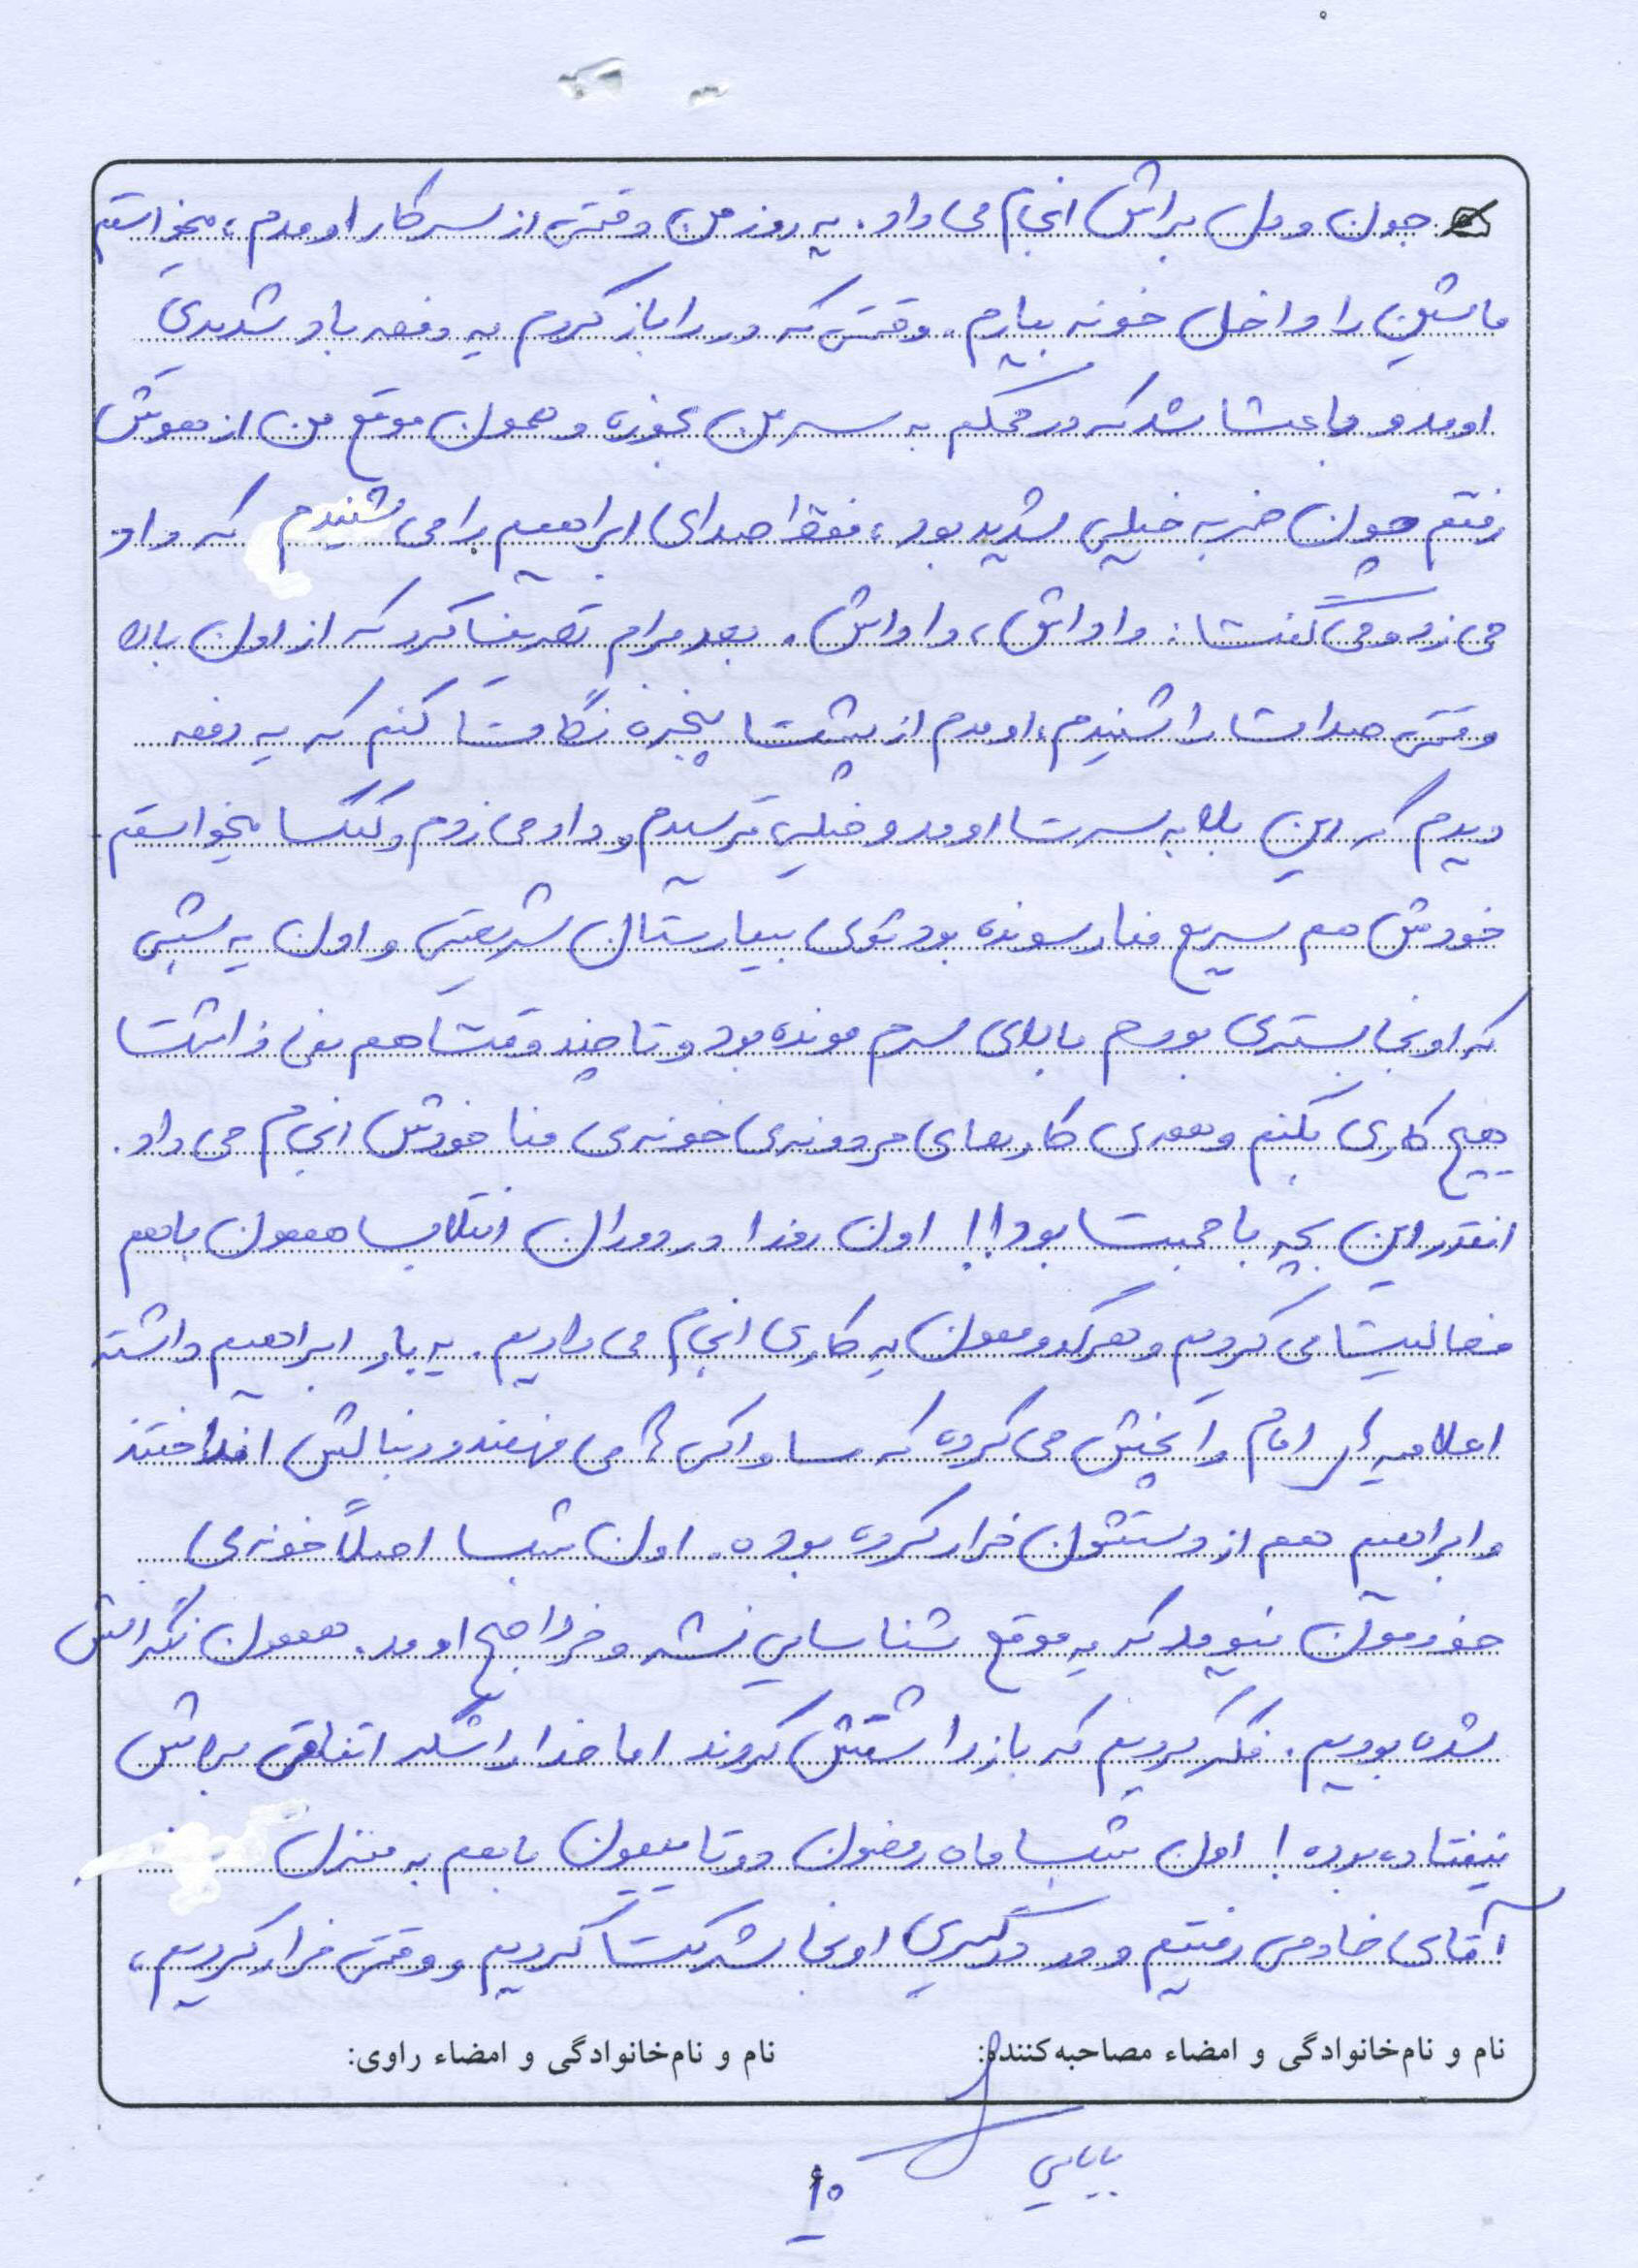 جون و دل براش انجام می داد. یه روز من وقتی از سر کار اومدم، میخواستم
ماشین را داخل خونه بیارم. وقتی که در را باز کردم یه دفعه باد شدیدی
اومد و باعث شد که در محکم به سر من بخوره و همون موقع من از هوش
رفتم چون ضربه خیلی شدید بود، فقط صدای ابراهیم را می شنیدم که داد
می زد و می گفت: داداش، داداش. بعد برام تعریف کرد که از اون بالا
وقتی صدات را شنیدم، اومدم از پشت پنجره نگات کنم که یه دفعه
دیدم که این بلا به سرت اومد و خیلی ترسیدم و داد می زدم و کمک میخواستم.
خودش هم سریع منا رسونده بود توی بیمارستان شریعتی و اون یه شبی
که اونجا بستری بودم بالای سرم مونده بود و تا چند وقت هم نمی ذاشت
هیچ کاری بکنم و همه ی کارهای مردونه ی خونه ی منا خودش انجام می داد.
انقدر این بچه با محبت بود!! اون روزا در دوران انقلاب هممون با هم
فعالیت می کردیم و هر کدوممون یه کاری انجام می دادیم. یه بار ابراهیم داشته
اعلامیه ی امام را پخش می کرده که ساواکی ها می فهمند و دنبالش افتادند
و ابراهیم هم از دستشون فرار کرده بوده. اون شب اصلاً خونه ی
خودمون نیومد که یه موقع شناسایی نشه و فردا صبح اومد. هممون نگرانش
شده بودیم. فکر کردیم که بازداشتش کردند اما خدا را شکر اتفاقی براش
نیفتاده بوده! اون شب ماه رمضون دوتاییمون با هم به منزل
آقای خادمی رفتیم و در درگیری اونجا شرکت کردیم و وقتی فرار کردیم،
نام و نام‌خانوادگی و امضاء مصاحبه‌کننده:
نام و نام‌خانوادگی و امضاء راوی:
بابایی
۱۰